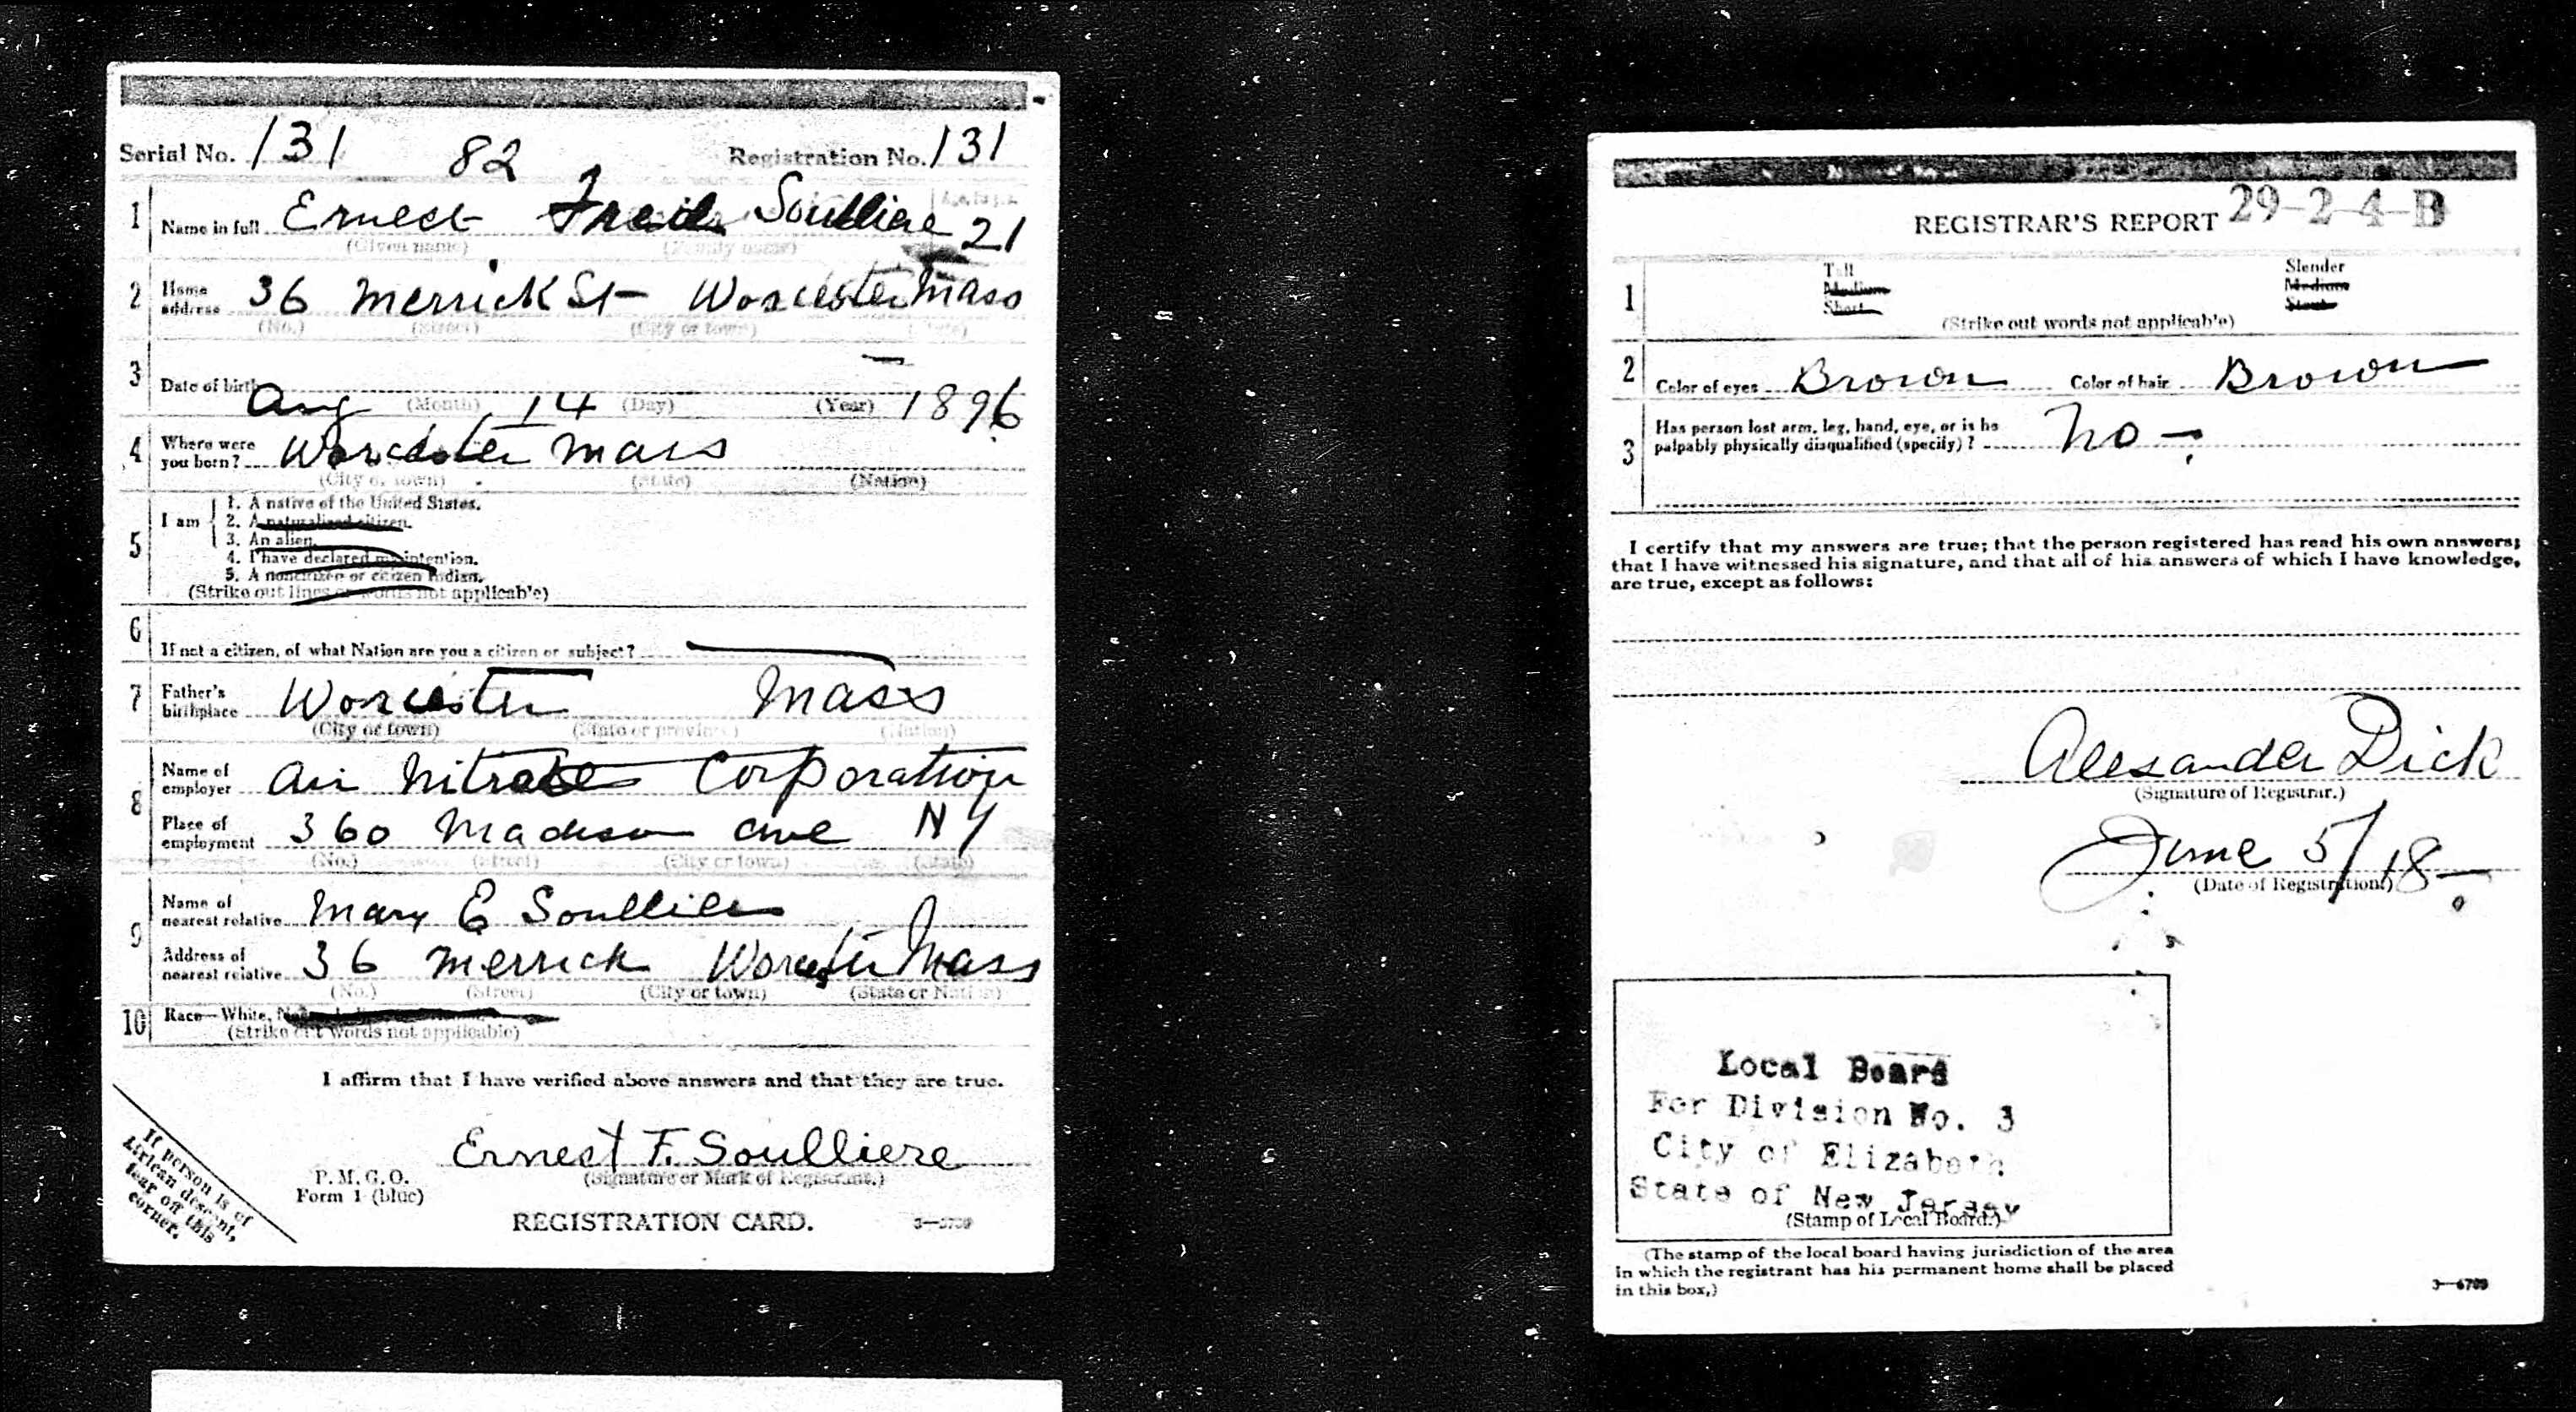 Serial No. 131 82 Registration No. 131
1 Name in full Ernest Soulliere 21
(Given name) (Family name)
2 Home address 36 Merrick St Worcester Mass
(No.) (Street) (City or town) (State)
3 Date of birth Aug (Month) 14 (Day) (Year) 1896
4 Where were you born? Worcester Mass
(City or town) (State) (Nation)
5 I am
1. A native of the United States.
2. A naturalized citizen.
3. An alien.
4. I have declared my intention.
5. A noncitizen or citizen Indian.
(Strike out lines or words not applicable)
6 If not a citizen, of what Nation are you a citizen or subject?
7 Father's birthplace Worcester Mass
(City or town) (State or province) (Nation)
8 Name of employer Air Nitrates Corporation
Place of employment 360 Madison Ave NY
(No.) (Street) (City or town) (State)
9 Name of nearest relative Mary E Soulliere
Address of nearest relative 36 Merrick Worcester Mass
(No.) (Street) (City or town) (State or Nation)
10 Race—White,
(Strike out words not applicable)
I affirm that I have verified above answers and that they are true.
Ernest F. Soulliere
(Signature or Mark of Registrant.)
P. M. G. O.
Form 1 (blue)
REGISTRATION CARD.
If person is of
African descent,
tear off this
corner.
REGISTRAR'S REPORT 29-2-4-B
1 Tall Slender
Medium Medium
Short Stout
(Strike out words not applicable)
2 Color of eyes Brown Color of hair Brown
3 Has person lost arm, leg, hand, eye, or is he
palpably physically disqualified (specify)? No
I certify that my answers are true; that the person registered has read his own answers;
that I have witnessed his signature, and that all of his answers of which I have knowledge,
are true, except as follows:
Alexander Dick
(Signature of Registrar.)
June 5/18
(Date of Registration)
Local Board
For Division No. 3
City of Elizabeth
State of New Jersey
(Stamp of Local Board.)
(The stamp of the local board having jurisdiction of the area
in which the registrant has his permanent home shall be placed
in this box.)
3—6709